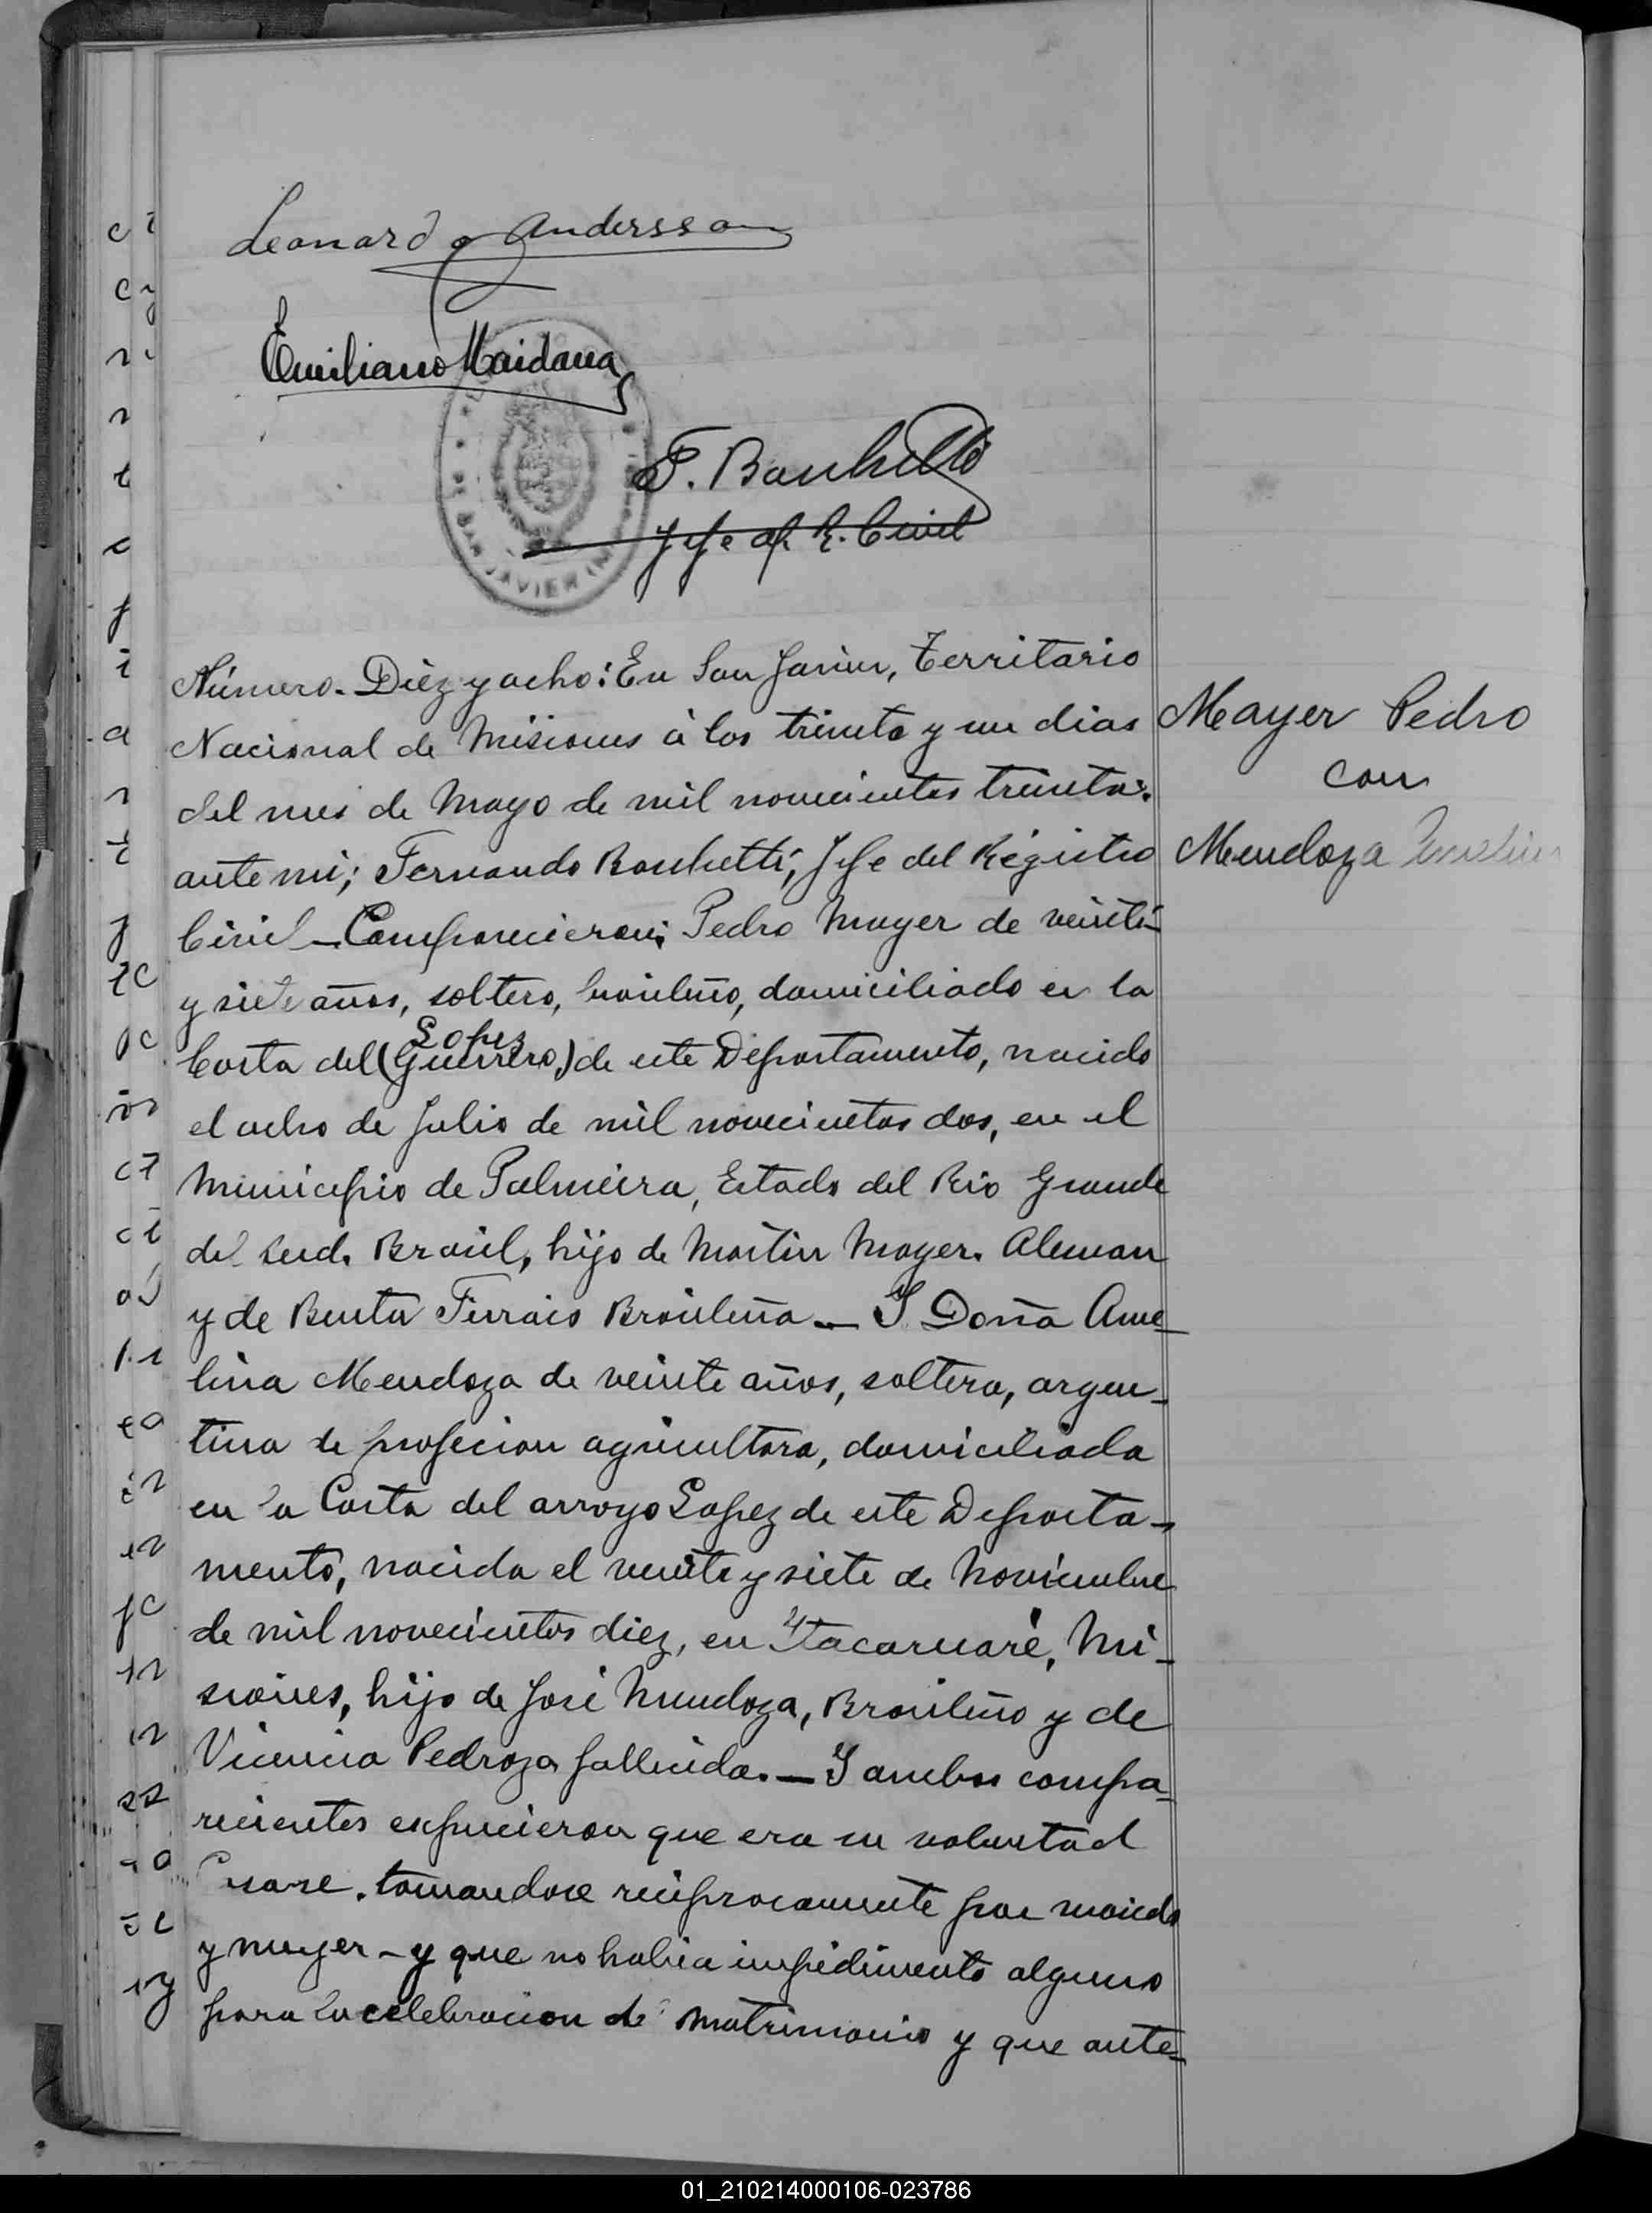 Leonardo Andersson
Emiliano Maidana
F. Banchetti
Jefe of. R. Civil
DE SAN JAVIER
Número. Diez y ocho: En San Javier, Territorio
Nacional de Misiones á los treinta y un dias
del mes de Mayo de mil novecientos treinta:
ante mi; Fernando Banchetti, Jefe del Registro
Civil _ Comparecieron; Pedro Mayer de veinti-
y siete años, soltero, brasileño, domiciliado en la
Lopez
Costa del (Guerrero) de este Departamento, nacido
el ocho de Julio de mil novecientos dos, en el
Municipio de Palmeira, Estado del Rio Grande
del Sud. Brasil, hijo de Martin Mayer. Aleman
y de Benta Ferrais Brasileña _ Y Doña Ame-
lina Mendoza de veinte años, soltera, argen-
tina de profecion agricultora, domiciliada
en la Costa del arroyo Lopez de este Departa-
mento, nacida el veinte y siete de Noviembre
de mil novecientos diez, en Itacaruaré, Mi-
siones, hijo de José Mendoza, Brasileño y de
Vicencia Pedroza fallecida. _ Y ambos compa-
recientes expucieron que era su voluntad
Casarse. tomandose reciprocamente por marido
y muger - y que no habia impedimento alguno
para la celebracion del matrimonio y que ante-
Mayer Pedro
con
Mendoza